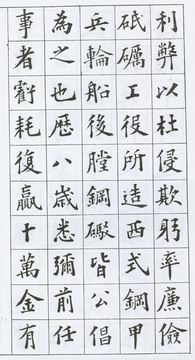 利弊以杜侵欺躬率廉儉
砥礪工役所造西式鋼甲
兵輪船後膛鋼礮皆公倡
為之也歷八歲悉彌前任
事者虧耗復贏十萬金有